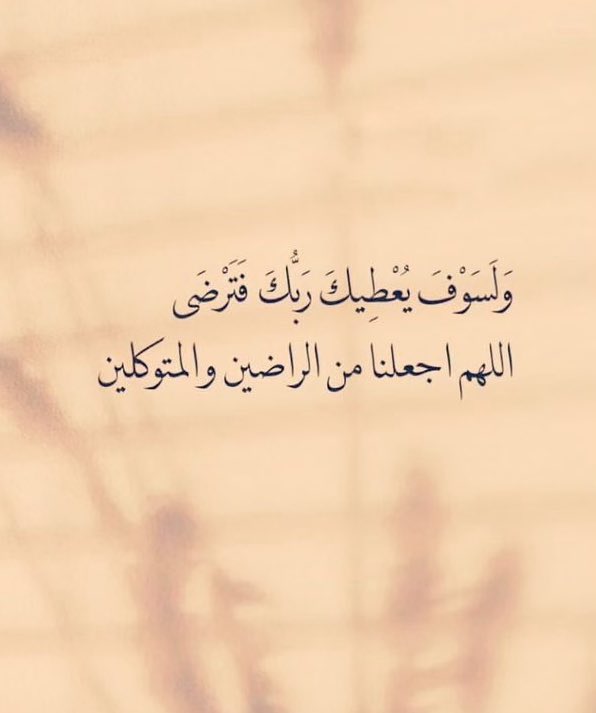 وَلَسَوْفَ يُعْطِيكَ رَبُّكَ فَتَرْضَى
اللهم اجعلنا من الراضين والمتوكلين